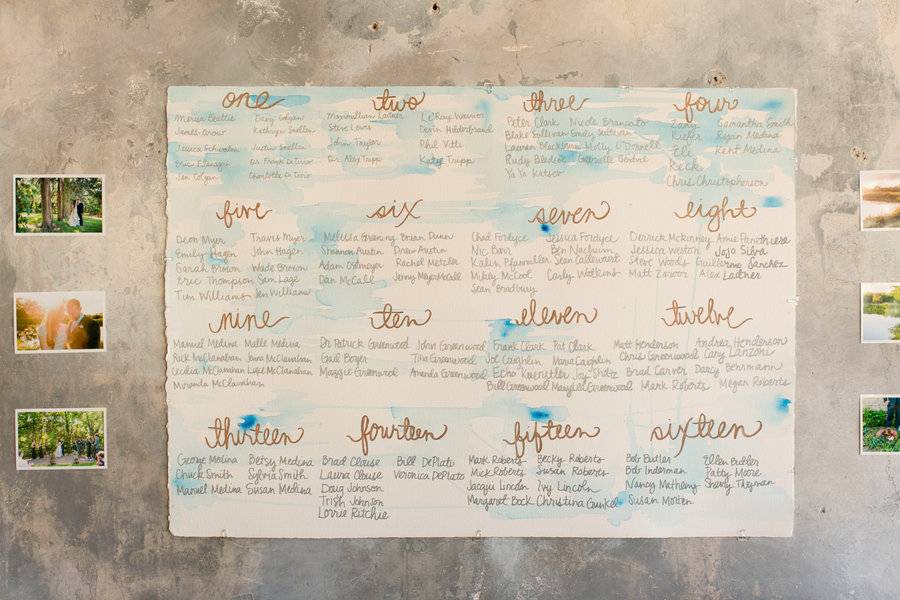 one
Marisa Beattie Dary Colgan
James Crow Kathryn Snellen
Jessica Justin Snellen
Eric Flanagan Dr. Frank
Jen Colgan Charlotte
two
Maximillian Laitner LeRoy Warrior
Steve Lewis Devin Hildenbrand
John Taylor Phil Vitti
Dr. Alex Tripp Katie Tripp
three
Peter Clark Nicole Brancato
Blake Sullivan Emily Sullivan
Lauren Blackburn Molly O'Donnell
Rudy Gabrielle
Ya Ya
four
Zany Samantha South
Kiefer Ryan Medina
Eli Kent Medina
Rick
Chris Christopherson
five
Deon Myer Travis Myer
Emily Hagen John Hagen
Sarah Brown Wade Brown
Eric Thompson Sam Lage
Tim Williams Jen Williams
six
Melissa Greening Brian Dunn
Shannon Austin Drew Austin
Adam Ostmeyer Rachel Metzler
Dan McCall Jenny Mayer McCall
seven
Chad Fordyce Jessica Fordyce
Nic Ben Nachum
Kalen Pfannmuller Sean Callewaert
Mikey McCool Carly Watkins
Sean Bradbury
eight
Derrick McKinney Amie Panethiere
Jessica Weston JoJo Silva
Steve Woods Guillermo Sanchez
Matt Zavoor Alex Laitner
nine
Manuel Medina Malle Medina
Rick McClanahan Jana McClanahan
Cecilia McClanahan Luke McClanahan
Miranda McClanahan
ten
Dr. Patrick Greenwood John Greenwood
Gail Boyer Tina Greenwood
Maggie Greenwood Amanda Greenwood
eleven
Frank Clark Pat Clark
Joe Caughlin Maria Caughlin
Echo Knenttler Jay Shotz
Bill Greenwood Maryilee Greenwood
twelve
Matt Henderson Andrea Henderson
Chris Greenwood Cary Lanzoni
Brad Carver Darcy Behrmann
Mark Roberts Megan Roberts
thirteen
George Medina Betsy Medina
Chuck Smith Sylvia Smith
Manuel Medina Susan Medina
fourteen
Brad Clause Bill DePlato
Laura Clause Veronica DePlato
Doug Johnson
Trish Johnson
Lorrie Ritchie
fifteen
Mark Roberts Becky Roberts
Mick Roberts Susan Roberts
Jacqui Lincoln Ivy Lincoln
Margaret Bock Christina Gunkel
sixteen
Bob Butler Ellen Butler
Bob Inderman Patty Moore
Nancy Matheny Sherry Thayman
Susan Morten